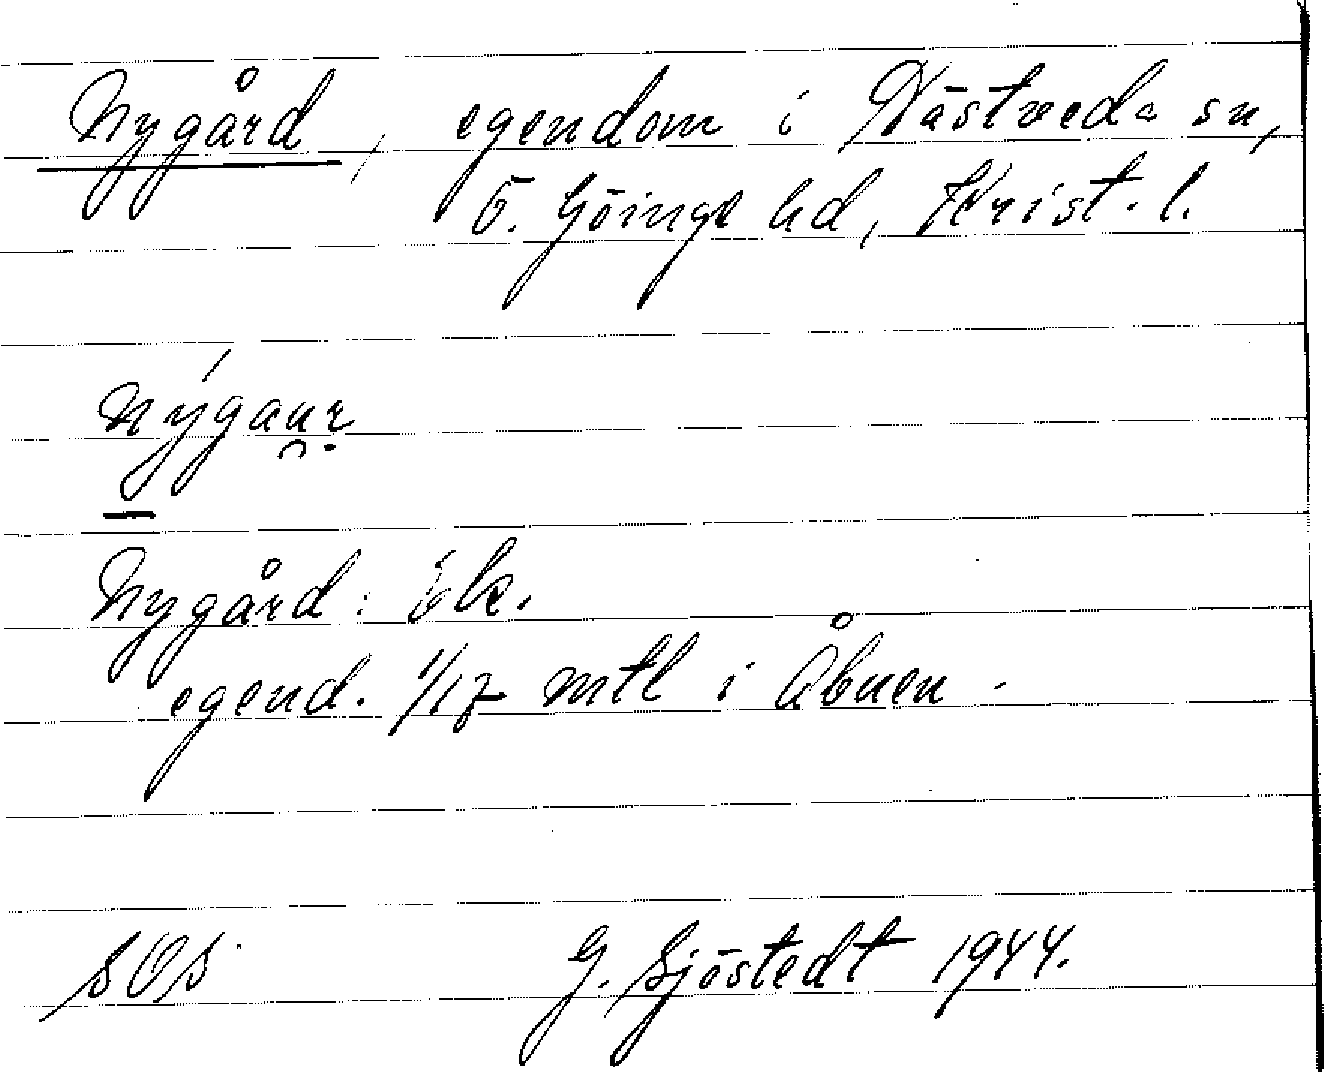 Nygård, egendom i Nästveda sn,
Ö. Göinge hd, Krist. l.
nýgau̯ṛ
Nygård: Ek.
egend. 1/17 mtl i Åbuen.
SOS G. Sjöstedt 1944.